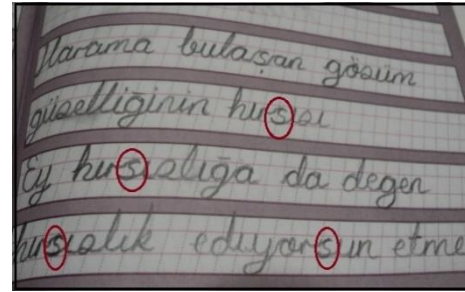 Harama bulaşan gözüm
güzelliğinin hırsızı
Ey hırsızlığa da değen
hırsızlık ediyorsun etme